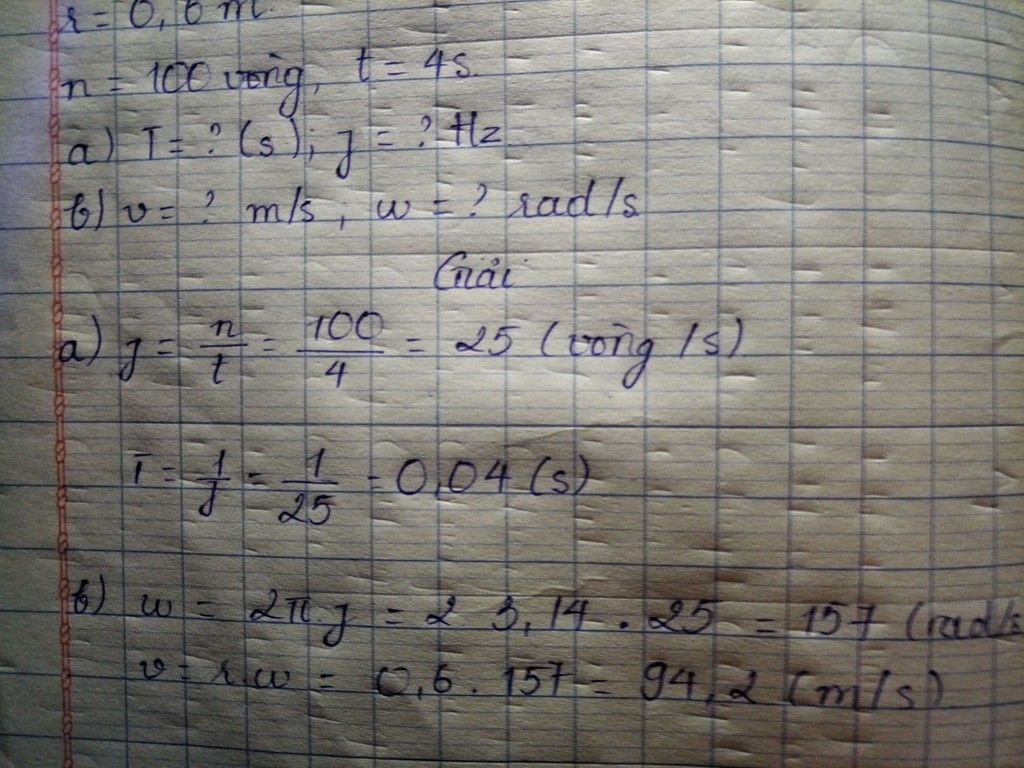 r = 0,6 m.
n = 100 vòng, t = 4s.
a) T = ? (s); f = ? Hz
b) v = ? m/s ; ω = ? rad/s
Giải
a) f = n/t = 100/4 = 25 (vòng/s)
T = 1/f = 1/25 = 0,04 (s)
b) ω = 2π.f = 2 3,14 . 25 = 157 (rad/s
v = r.ω = 0,6 . 157 = 94,2 (m/s)